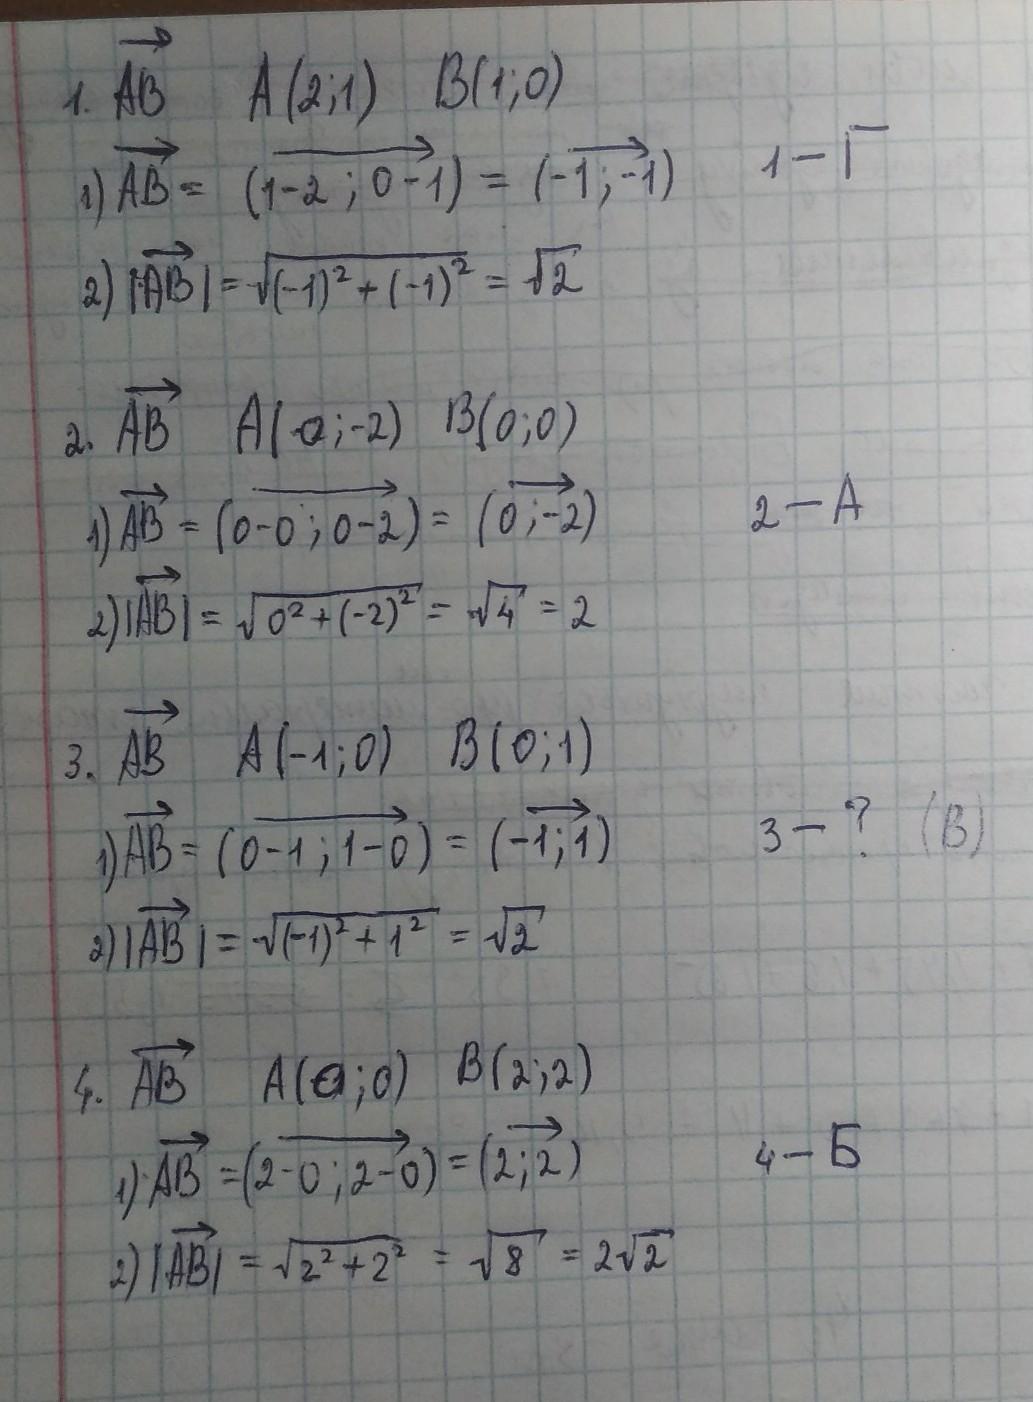 1. AB A(2;1) B(1;0)
1) AB = (1-2 ; 0-1) = (-1;-1) 1 - Г
2) |AB| = √(-1)² + (-1)² = √2
2. AB A(0;-2) B(0;0)
1) AB = (0-0 ; 0-2) = (0;-2) 2 - А
2) |AB| = √0² + (-2)² = √4 = 2
3. AB A(-1;0) B(0;1)
1) AB = (0-1 ; 1-0) = (-1;1) 3 - ? (В)
2) |AB| = √(-1)² + 1² = √2
4. AB A(0;0) B(2;2)
1) AB = (2-0 ; 2-0) = (2;2) 4 - Б
2) |AB| = √2² + 2² = √8 = 2√2